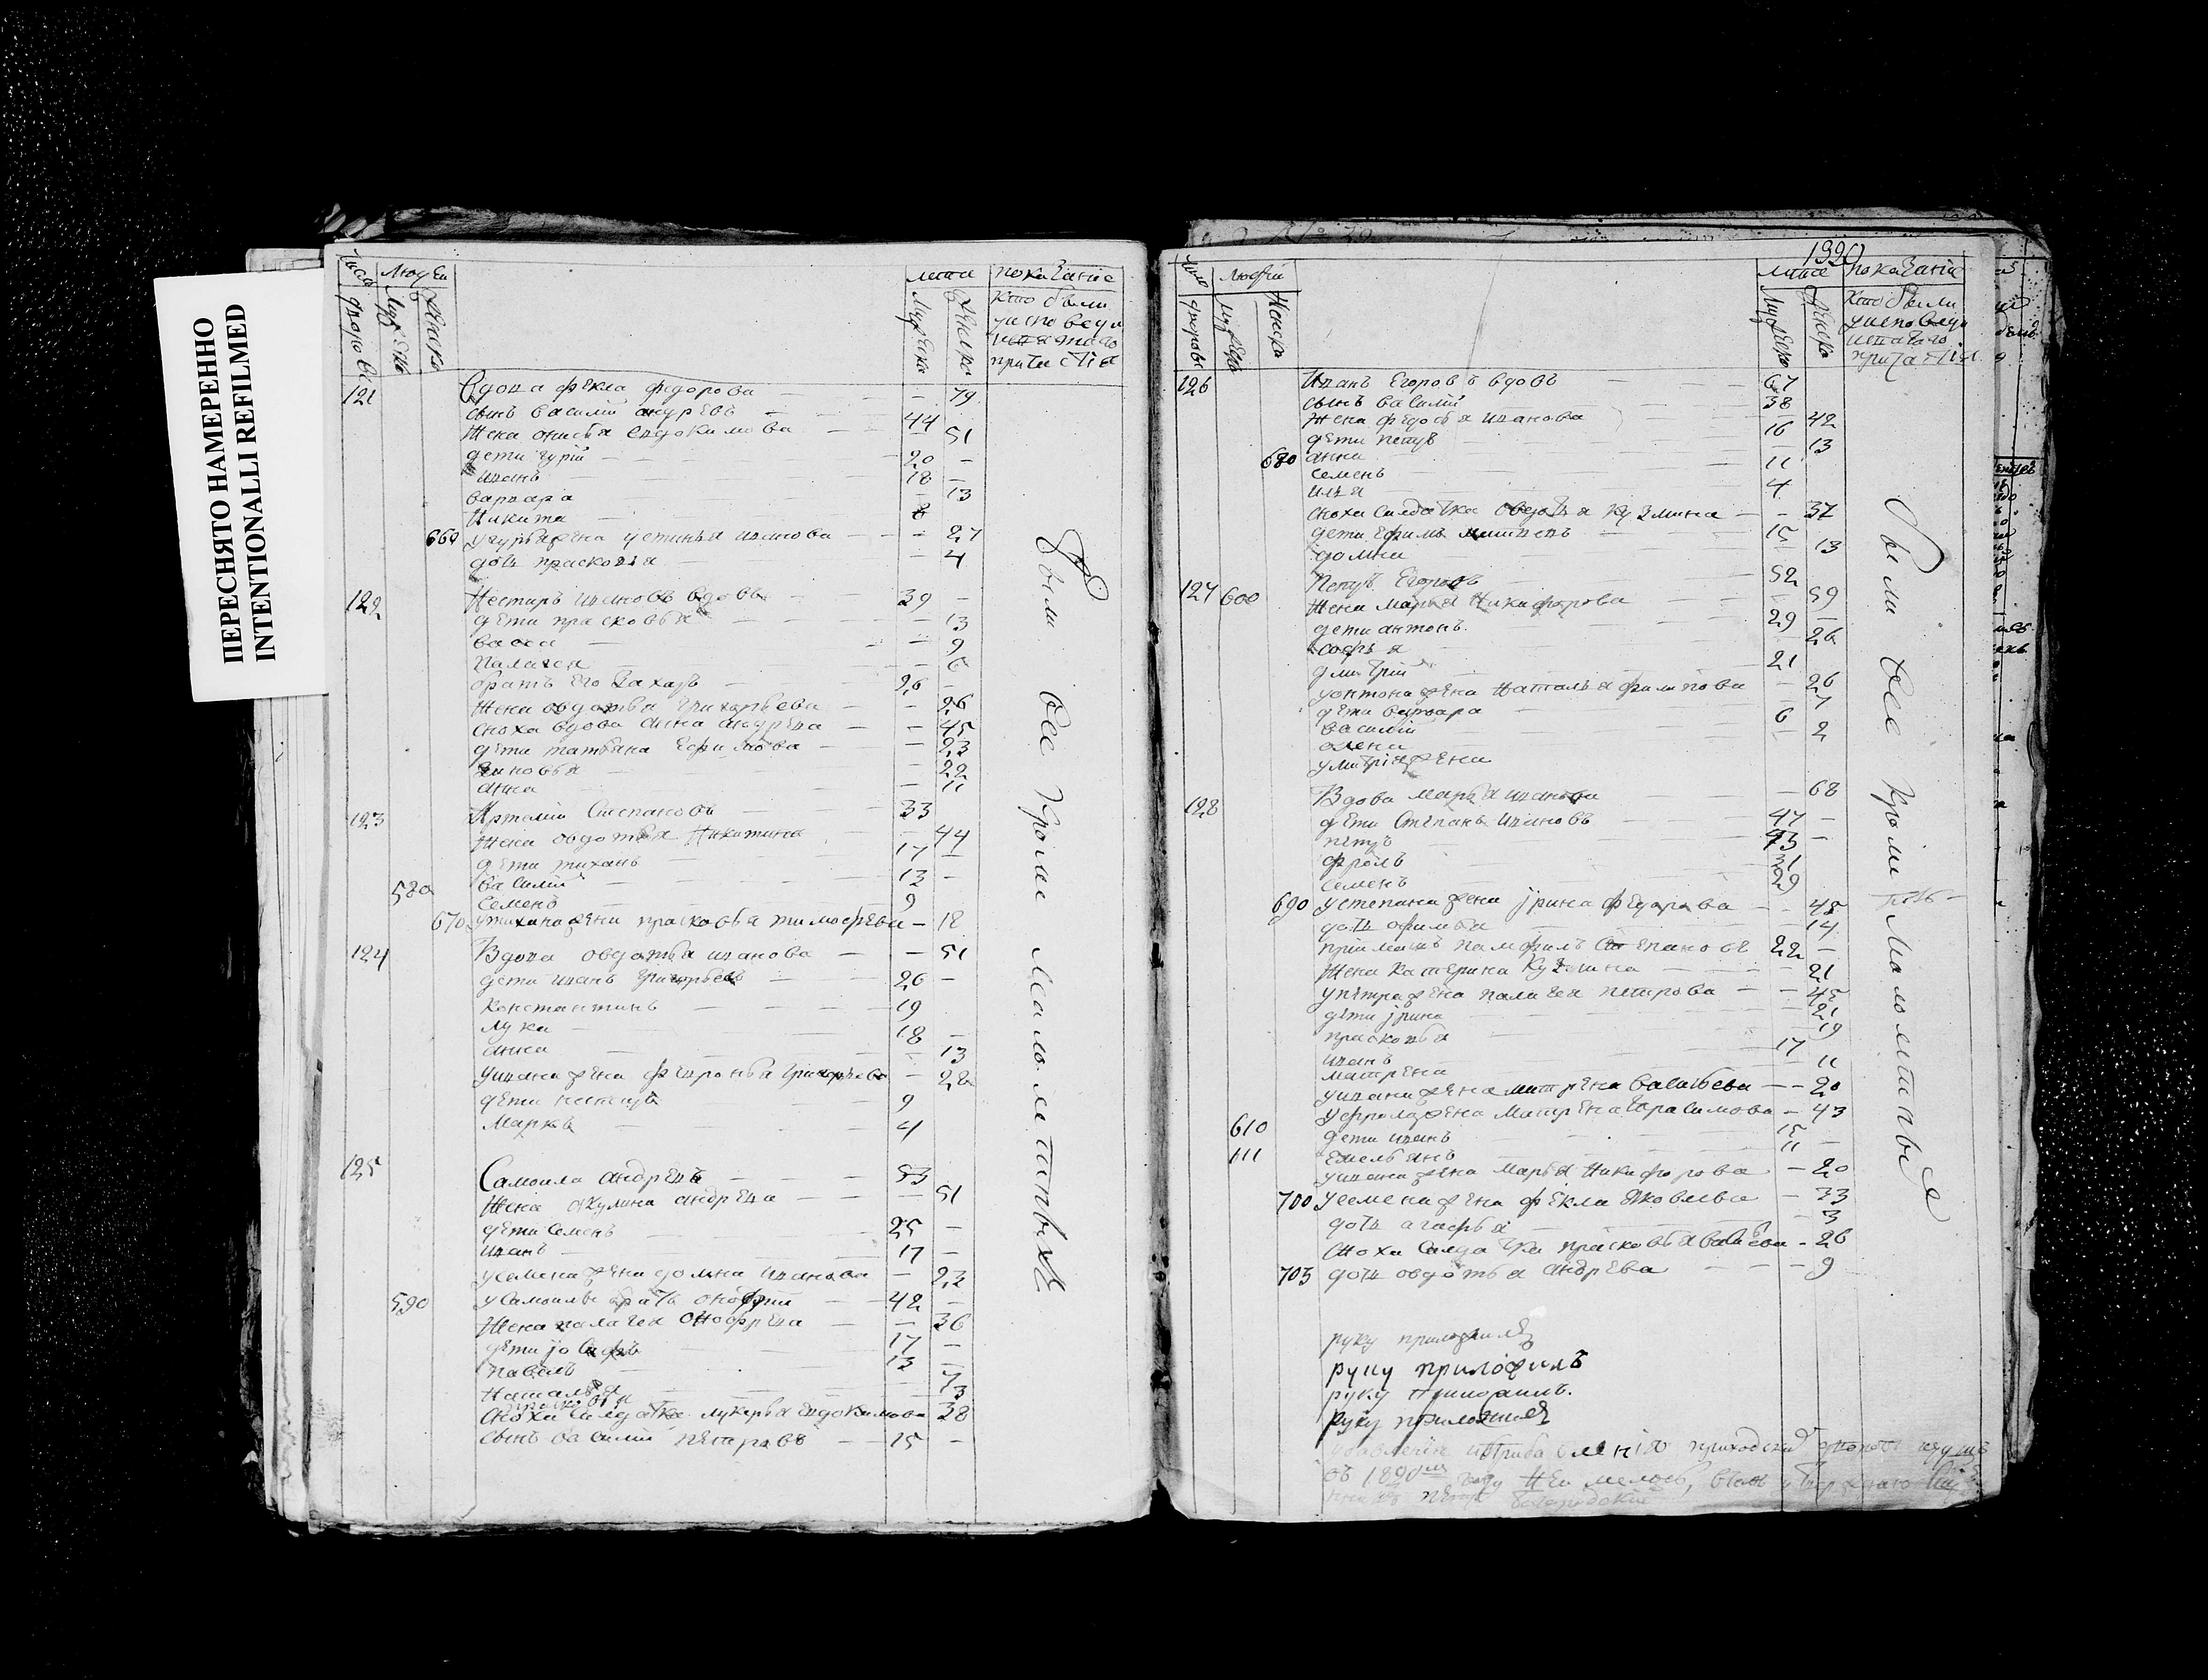 ПЕРЕСНЯТО НАМЕРЕННО
INTENTIONALLI REFILMED
число дворовъ
людеи
лита
показание
кто были
121 Вдова фекла федорова — 79
сынъ василии андреевъ 44
жена онисья евдокимова — 51
дети гурiй 20 —
иванъ 18 —
варвара — 13
никита 8
660 угурья жена устинья иванова — 27
доть прасковья — 4
122 Нестиръ ивановъ вдовъ 39 —
дети прасковья — 13
васса — 9
палагея — 6
братъ его захаръ 26 —
жена овдотья григорьева — 26
сноха вдова анна андреева — 45
дети татьяна ефимова — 23
зиновья — 22
анна — 11
123 Артемiй Степановъ 33
жена овдотья Никитина — 44
дети тиханъ 17 —
580 василiй 13 —
семенъ 9
670 утихана жена прасковья тимофеева — 18
124 Вдова овдотья иванова — 51
дети иванъ григорьевъ 26 —
константинъ 19
лука 18 —
анна — 13
уивана жена февронья григорьева — 28
дети нестиръ 9
марко 4
125 Самоила андреевъ 53
жена окулина андреева — 51
дети семенъ 25 —
иванъ 17 —
усемена жена домна иванова — 23
590 усамоилы братъ онофрiи 42 —
жена палагея онофреева — 36
дети iосифъ 17 —
павелъ 13 —
наталья 7
прасковья 3
сноха салдатка лукерья евдокимова 38
сынъ василiи петровъ 15 —
были все кроме малолитныхъ
1320
людей
лита
показанiе
кто были
126 Иванъ Егоровъ вдовъ 67
сынъ василiй 38
жена федосья иванова 42
дети петръ 16
680 анна 13
семенъ 11
илья 4
сноха салдатка овдотья кузмина — 37
дети ефимъ 15
домна 13
127 600 Петръ Егоровъ 52
жена марья никифорова 59
дети антонъ 29 —
софья 26
дмитрiй 21
уонтона жена наталья филипова — 26
дети варвара 7
василiй 6
олена 2
умитрiя жена
128 Вдова марья иванова — 68
дети степанъ ивановъ 47 —
петръ 43 —
фролъ 31
семенъ 29
690 устепана жена ирина федорова — 48
доть офимья 14
прiимышъ памфилъ степановъ 22 —
жена катерина кузмина — 21
упетра жена палагея петрова — 45
дети ирина 21
прасковья 19
иванъ 17
матрена 11
уивана жена матрена васильева — 20
уфрола жена матрена герасимова — 43
610 дети иванъ 15 —
611 емельянъ 11
уивана жена марья никифорова — 20
700 усемена жена фекла яковлева — 33
доть агафья 3
сноха салдатка прасковья — 26
703 доть овдотья андреева — 9
были все кроми малолитные
руку приложилъ
руку приложилъ
руку приложилъ
руку приложилъ